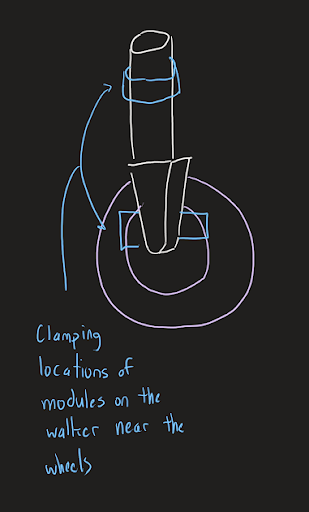 Clamping
locations of
modules on the
walker near the
wheels